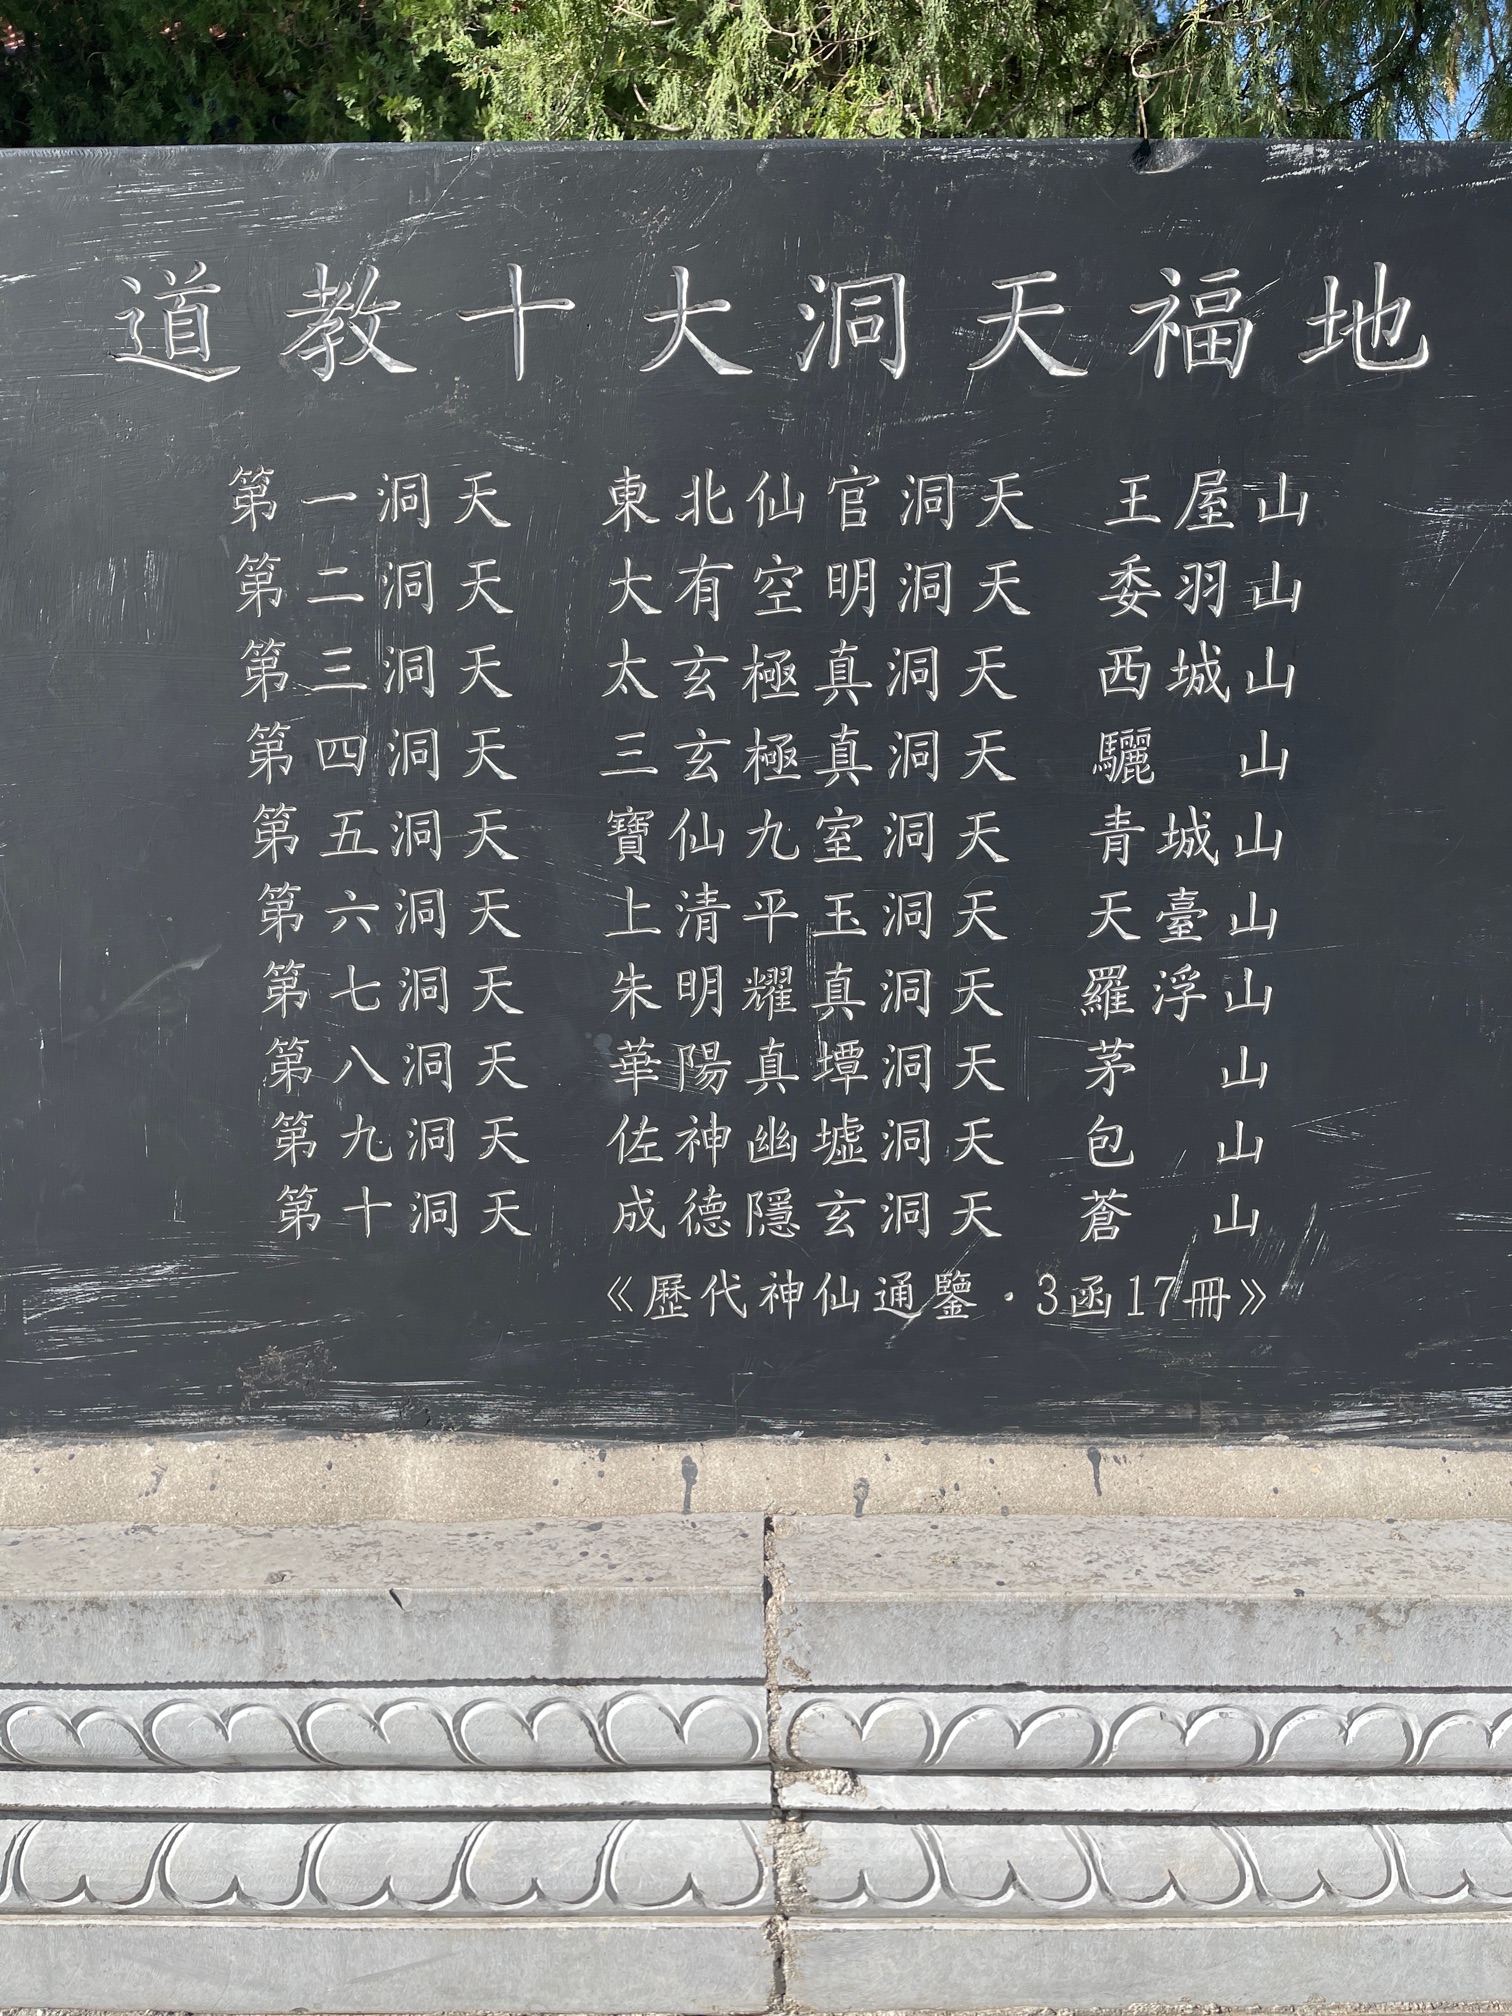 道教十大洞天福地
第一洞天 東北仙官洞天 王屋山
第二洞天 大有空明洞天 委羽山
第三洞天 太玄極真洞天 西城山
第四洞天 三玄極真洞天 驪山
第五洞天 寶仙九室洞天 青城山
第六洞天 上清平玉洞天 天臺山
第七洞天 朱明耀真洞天 羅浮山
第八洞天 華陽真墰洞天 茅山
第九洞天 佐神幽墟洞天 包山
第十洞天 成德隱玄洞天 蒼山
《歷代神仙通鑒·3函17冊》